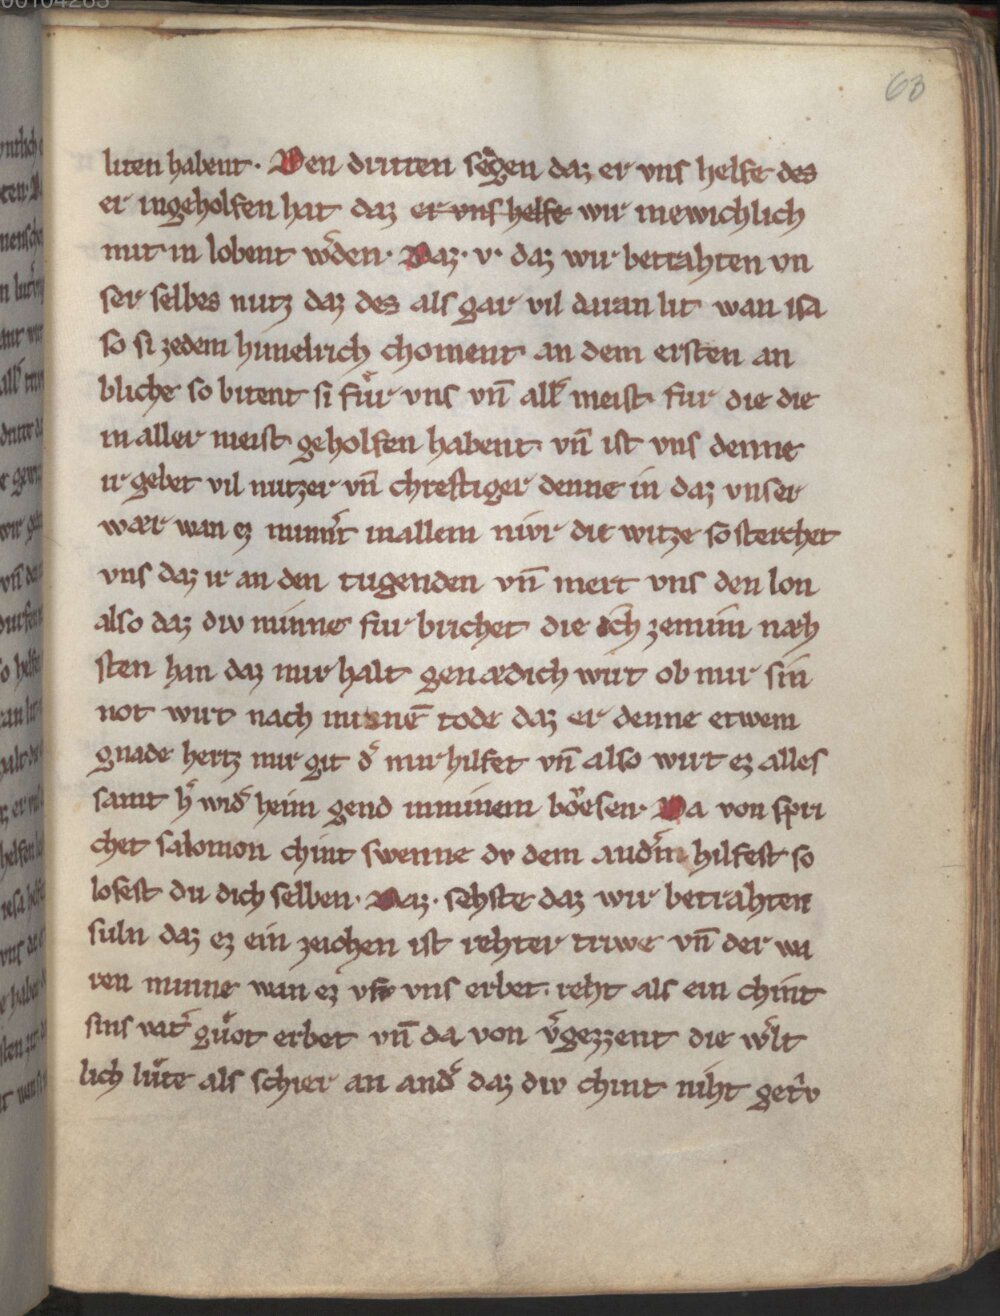 63
liten habent. Den dritten segen daz er vns helfe des
er in geholfen hat daz er vns helfe wir inewichlich
mit in lobent w͛den. Daz .v. daz wir betrahten vn
ser selbes nutz daz des als gar vil daran lit wan isa
so si zedem himelrich choment an dem ersten an
bliche so bitent si fuͤr vns vn̄ all͛ meist fur die die
in aller meist geholfen habent vn̄ ist vns denne
ir gebet vil nutzer vn̄ chreftiger denne in daz vnser
wær wan ez nimm͛t in allem niwr die witze so sterchet
vns daz ir an den tugenden vn̄ mert vns den lon
also daz diw minne fur brichet die ich zemim næh
sten han daz mir halt genædich wirt ob mir sin
not wirt nach minnē tode daz er denne etwem
gnade hertz mir git d͛ mir hilfet vn̄ also wirt ez alles
samt h͛ wid͛ heim gend in minem boͤesen. Da von spri
chet salomon chint swenne dv dem and͛m hilfest so
losest du dich selben. Daz. sehste daz wir betrahten
suln daz ez ein zeichen ist rehter triwe vn̄ der wa
ren minne wan ez vns erbet. reht als ein chint
sins vat͛ guͦot erbet vn̄ da von v͛gezzent die w͛lt
lich luͤte als schier an and͛ daz div chint niht getrv